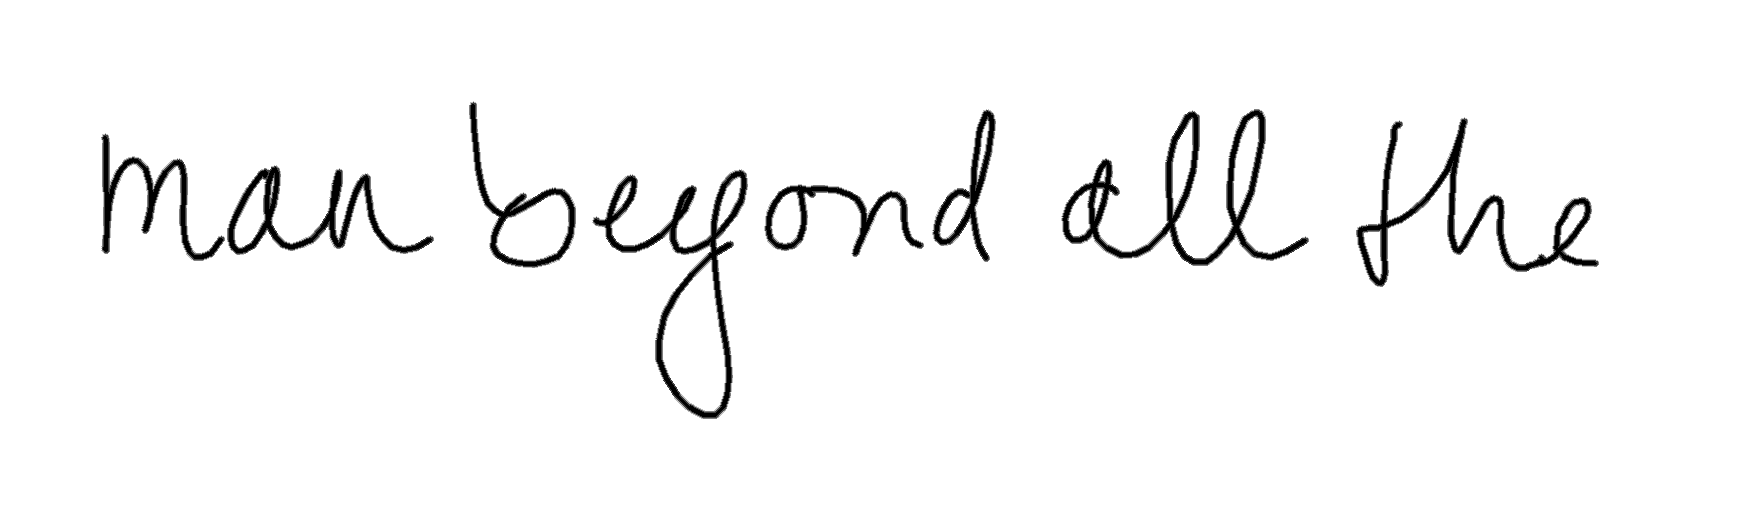 man beyond all the